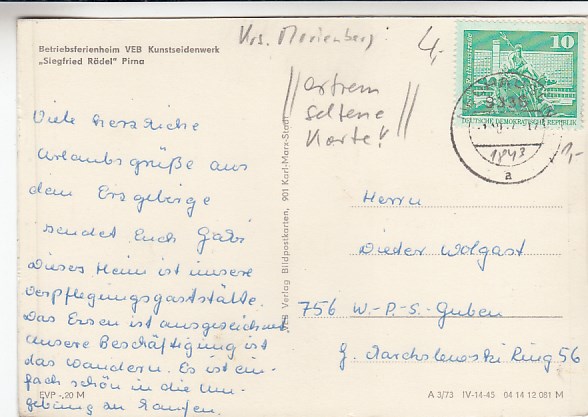 Krs. Marienberg
4,-
Betriebsferienheim VEB Kunstseidenwerk
„Siegfried Rädel" Pirna
extrem
seltene
Karte!
10
DEUTSCHE DEMOKRATISCHE REPUBLIK
1843
1,-
a
Viele herzliche
Urlaubsgrüße aus
dem Erzgebirge
sendet Euch Gabi
Dieses Heim ist unsere
Verpflegungsgaststätte.
Das Essen ist ausgezeichnet
unsere Beschäftigung ist
das wandern. Es ist ein-
fach schön in die Um-
gebung zu laufen.
VEB Verlag Bildpostkarten, 901 Karl-Marx-Stadt
Herrn
Dieter Wolgast
756 W.-P.-S.-Guben
Ring 56
EVP -,20 M
A 3/73 IV-14-45 04 14 12 081 M